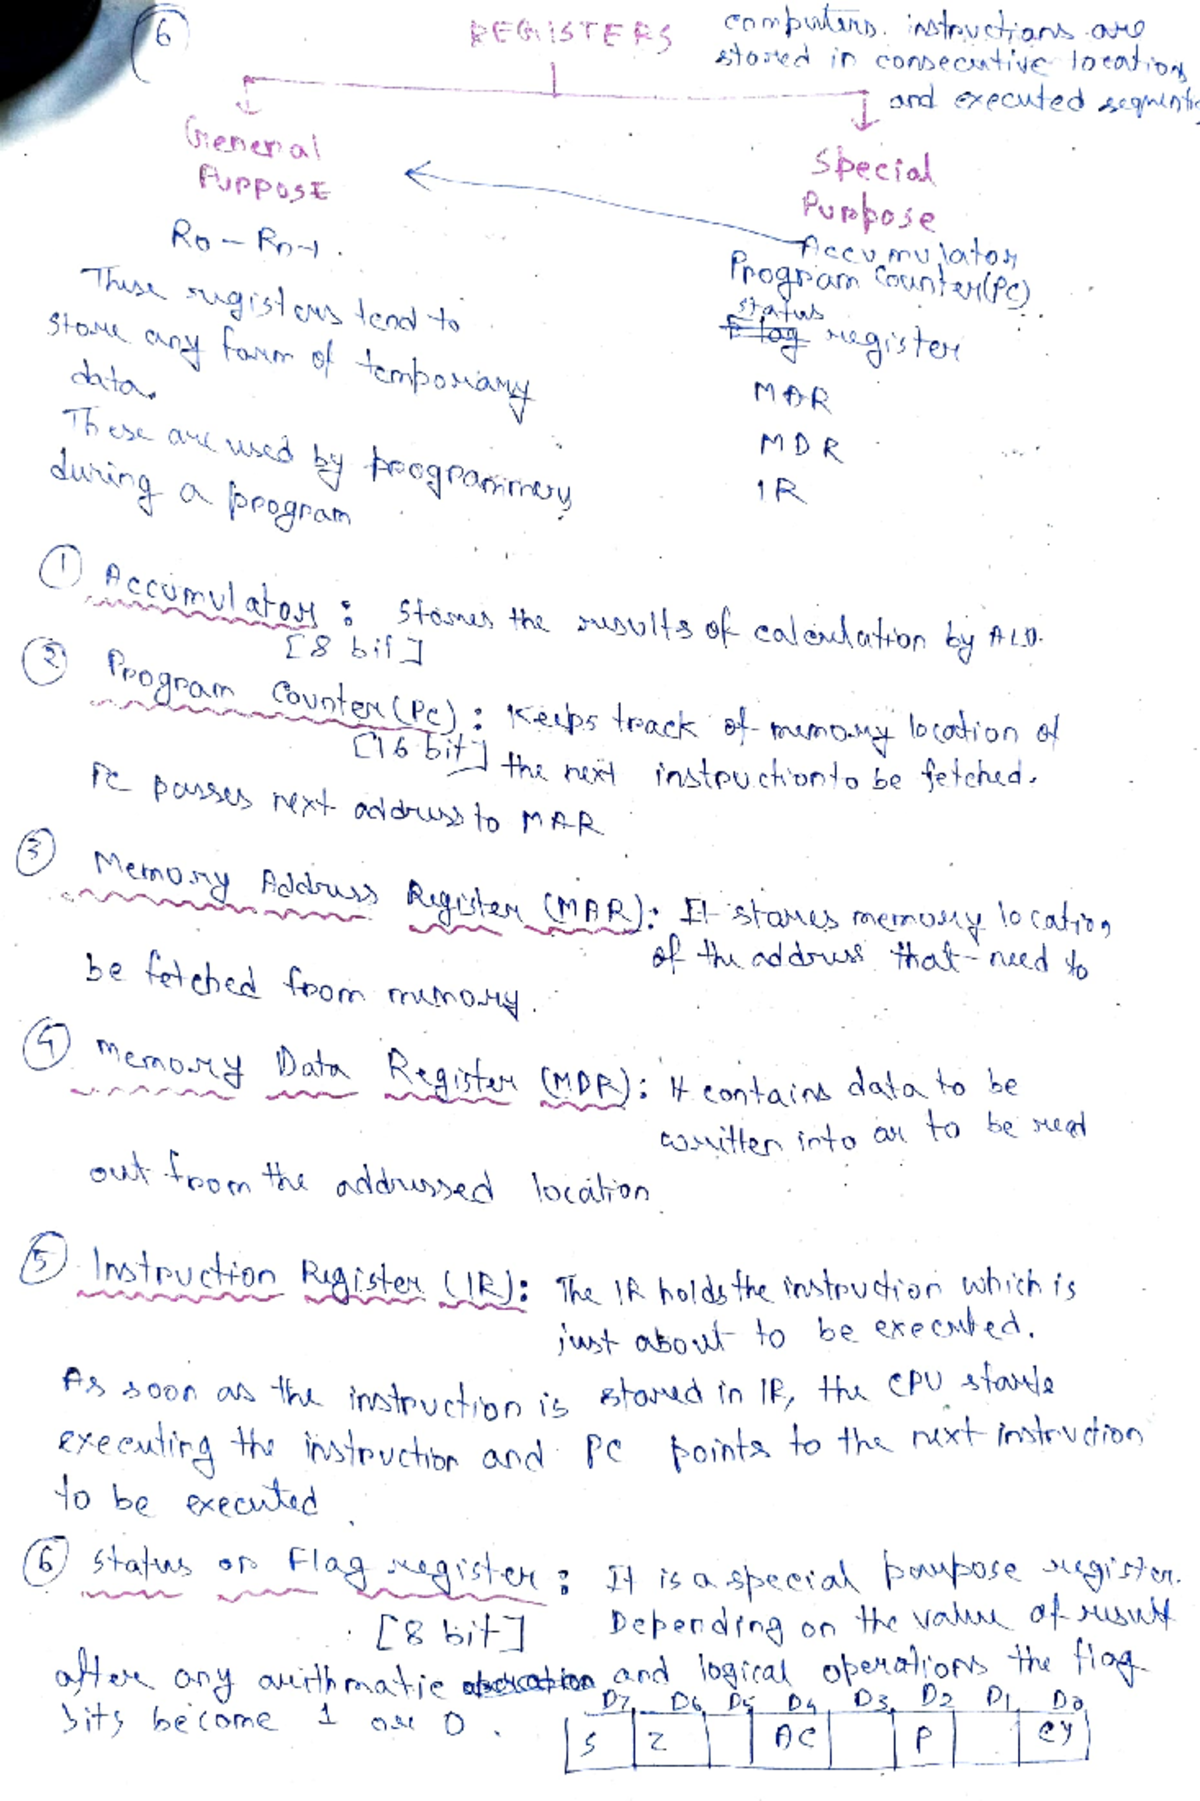 6
REGISTERS
computers. instructions are
stored in consecutive location
and executed
General
PURPOSE
Special
Purpose
R0 - Rn-1.
Accumulator
Program Counter(PC)
status
Flag register
MAR
MDR
IR
These registers tend to
store any form of temporary
data.
These are used by programmers
during a program
① Accumulator : stores the results of calculation by ALU.
[8 bit]
② Program Counter (PC) : Keeps track of memory location of
[16 bit] the next instruction to be fetched.
PC passes next address to MAR
③ Memory Address Register (MAR): It stores memory location
of the address that need to
be fetched from memory.
④ Memory Data Register (MDR): It contains data to be
written into or to be read
out from the addressed location
⑤ Instruction Register (IR): The IR holds the instruction which is
just about to be executed.
As soon as the instruction is stored in IR, the CPU starts
executing the instruction and PC points to the next instruction
to be executed.
⑥ Status or Flag register : It is a special purpose register.
[8 bit] Depending on the value of result
after any arithmatic and logical operations the flag
bits become 1 or 0.
D7 D6 D5 D4 D3 D2 D1 D0
S Z AC P CY